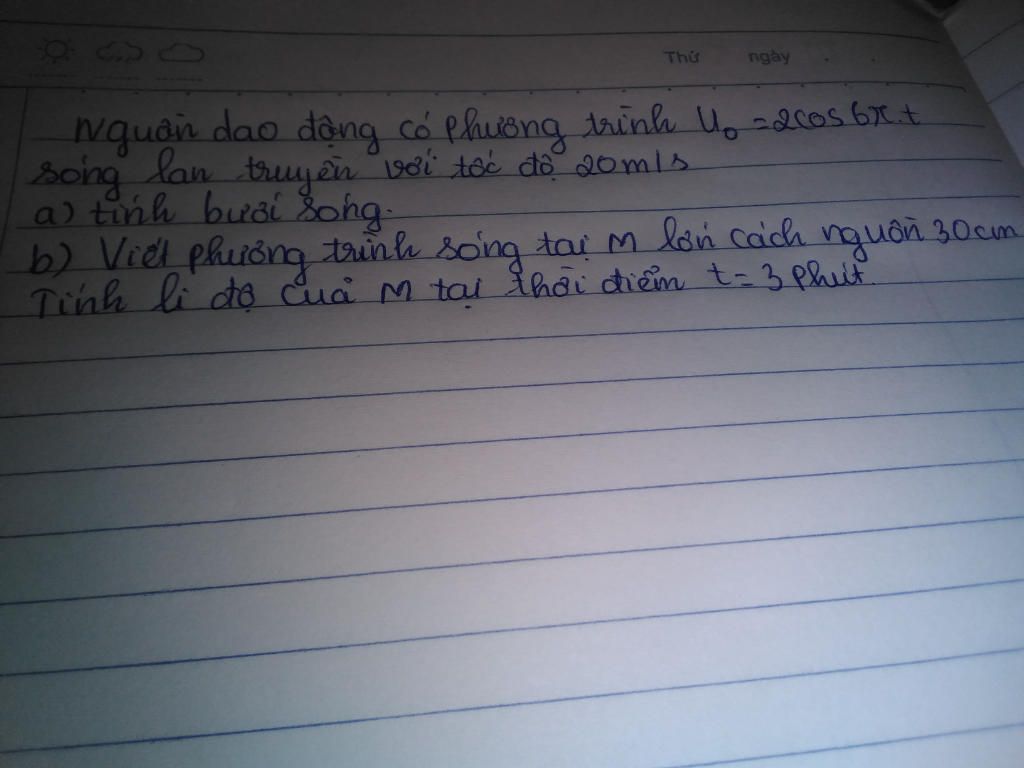 Thứ ngày
Nguồn dao động có phương trình U₀ = 2cos6π.t
sóng lan truyền với tốc độ 20m/s
a) tính bươí sóng.
b) Viết phương trình sóng tại M lơń cách nguồn 30cm
Tính li độ của M tại thời điểm t = 3 phút.